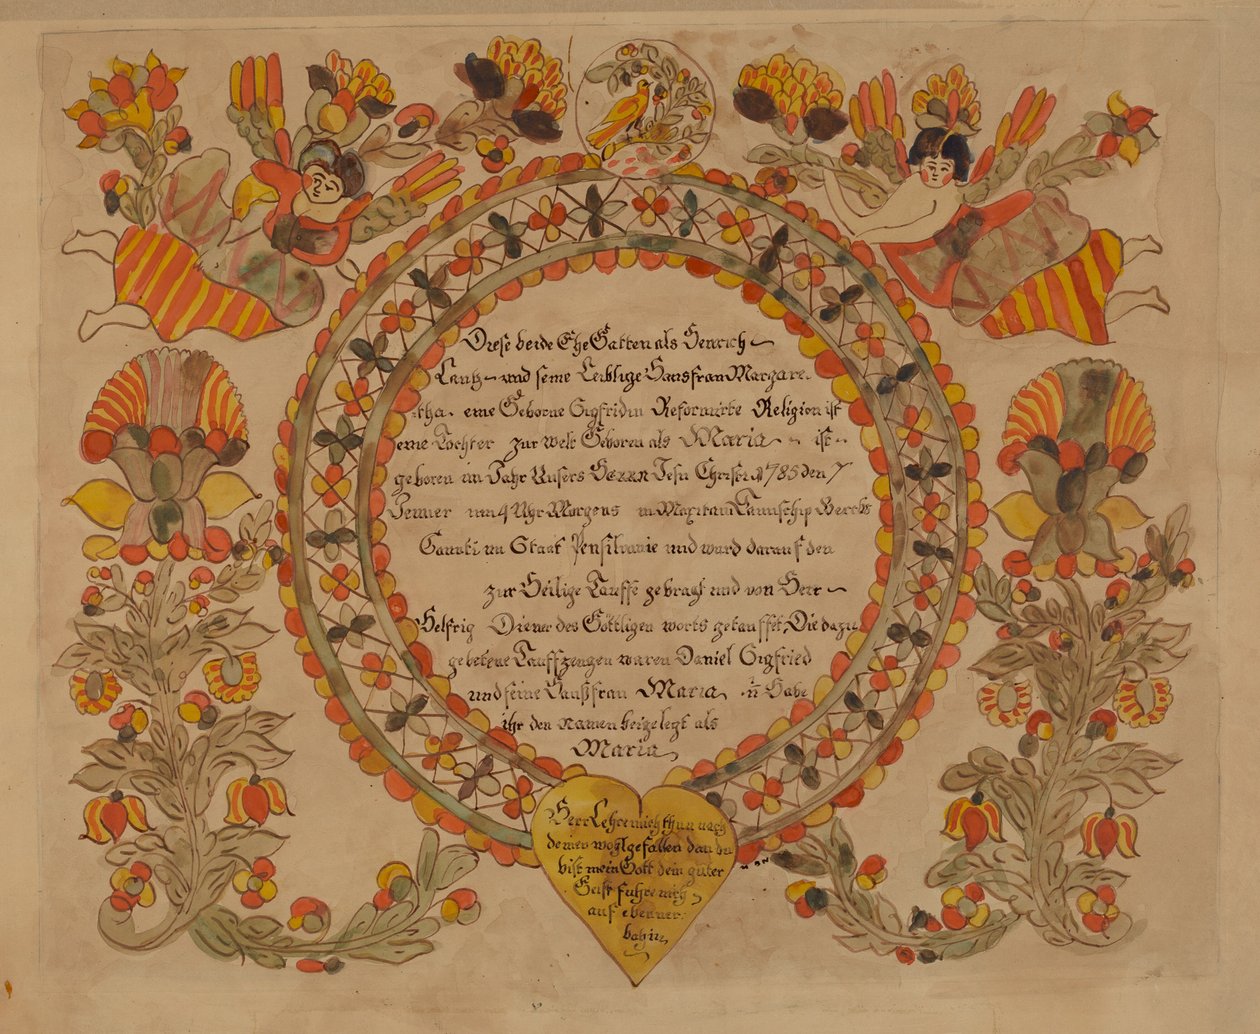 Diese beide Ehe Gatten als Henrich
Lantz und seine Leiblige Hausfrau Margare-
tha. eine Geborne Sigfridin Reformirte Religion ist
eine Tochter zur Welt Geboren als Maria ist
geboren im Jahr Unsers HERRN Jesu Christi 1785 den 7
Jenner um 4 Uhr Morgens in Maxitani Taunschip Bercks
Caunti im Staat Pensilvanie und ward darauf den
zur Heilige Tauffe gebragt und von Herr
Helfrig Diener des Göttligen worts getauffet, Die dazu
gebetene Tauffzeugen waren Daniel Sigfried
und seine Haußfrau Maria u Habe
ihr den namen beigelegt als
Maria
Herr Lehre mich thun nach
deinen wohlgefallen dan du
bist mein Gott dein guter
Geist fuhre mich
auf ebenner
bahn